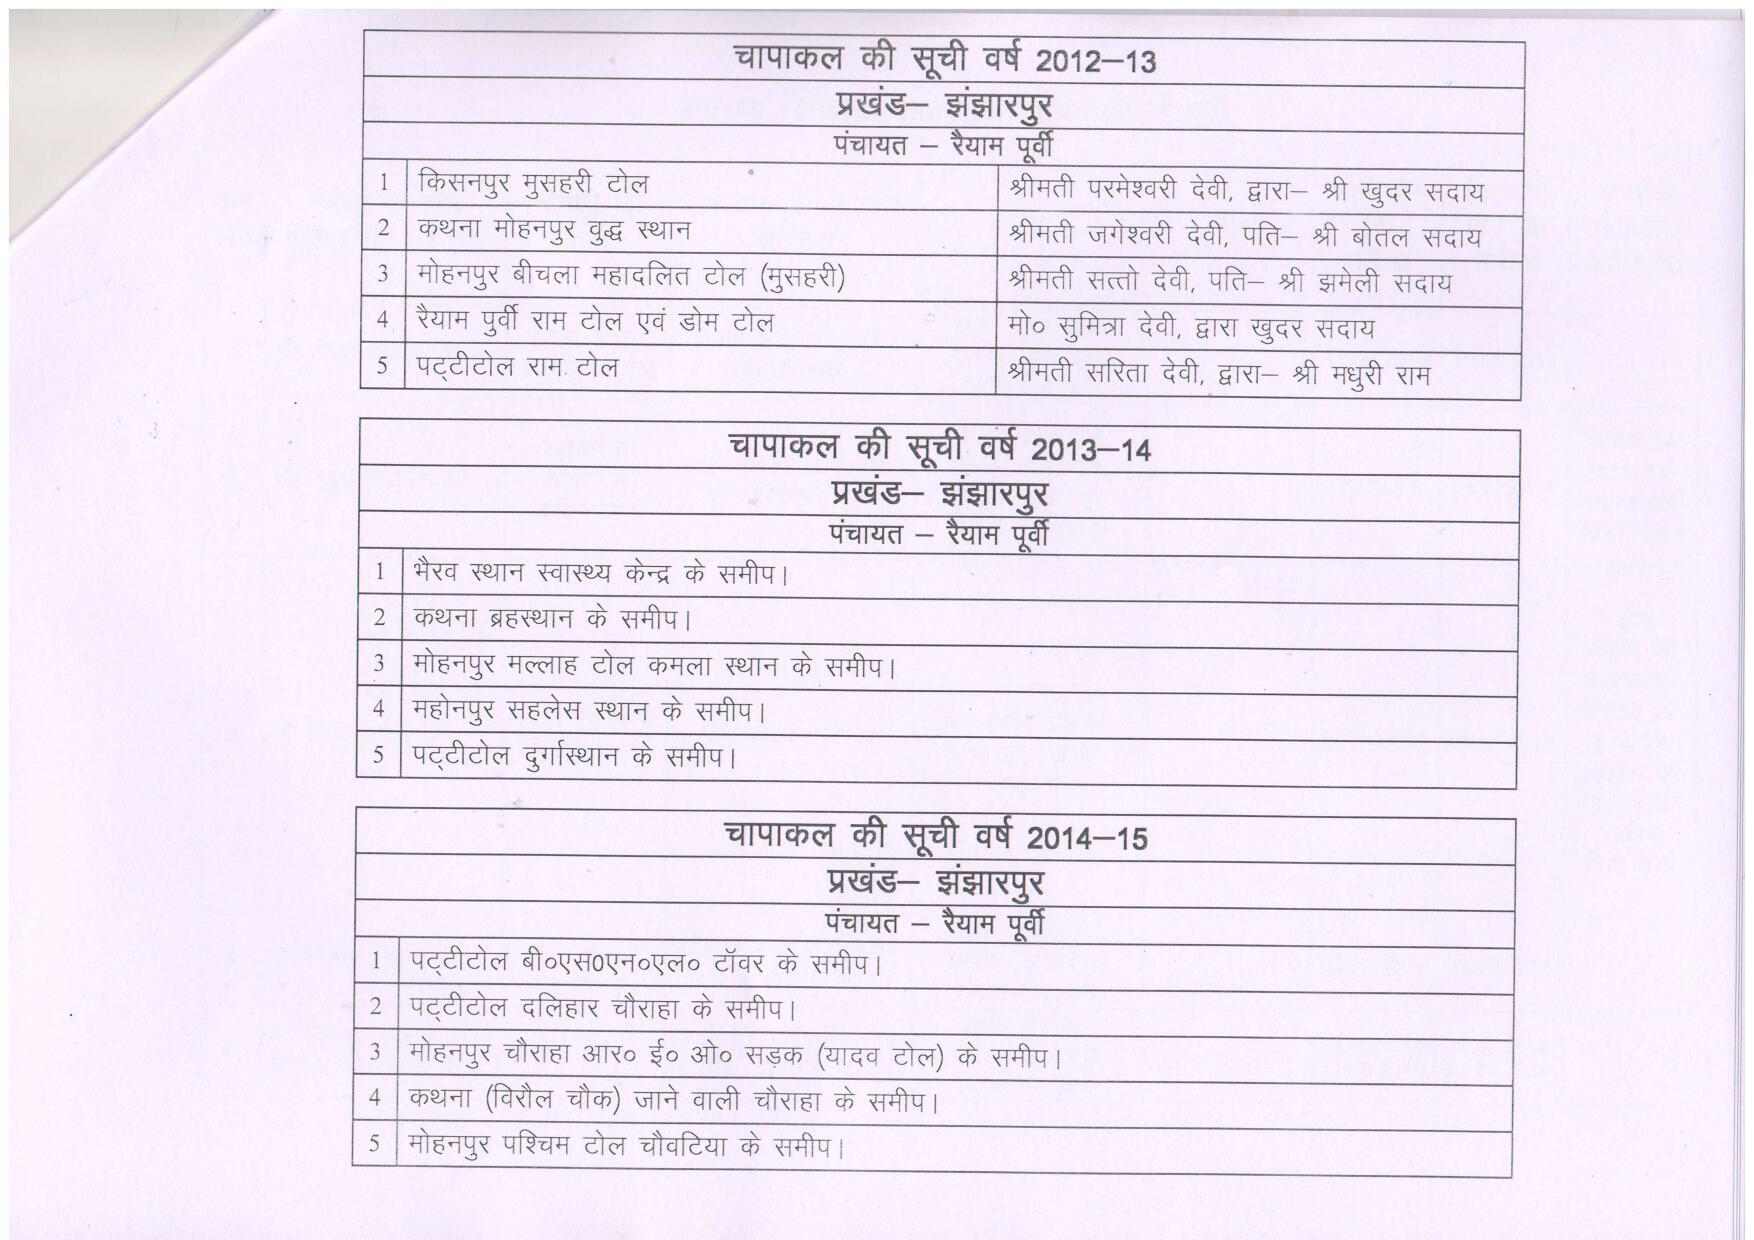 चापाकल की सूची वर्ष 2012–13
प्रखंड– झंझारपुर
पंचायत – रैयाम पूर्वी
1 किसनपुर मुसहरी टोल श्रीमती परमेश्वरी देवी, द्वारा– श्री खुदर सदाय
2 कथना मोहनपुर वुद्ध स्थान श्रीमती जगेश्वरी देवी, पति– श्री बोतल सदाय
3 मोहनपुर बीचला महादलित टोल (मुसहरी) श्रीमती सत्तो देवी, पति– श्री झमेली सदाय
4 रैयाम पुर्वी राम टोल एवं डोम टोल मो० सुमित्रा देवी, द्वारा खुदर सदाय
5 पट्टीटोल राम टोल श्रीमती सरिता देवी, द्वारा– श्री मधुरी राम
चापाकल की सूची वर्ष 2013–14
प्रखंड– झंझारपुर
पंचायत – रैयाम पूर्वी
1 भैरव स्थान स्वास्थ्य केन्द्र के समीप।
2 कथना ब्रहस्थान के समीप।
3 मोहनपुर मल्लाह टोल कमला स्थान के समीप।
4 महोनपुर सहलेस स्थान के समीप।
5 पट्टीटोल दुर्गास्थान के समीप।
चापाकल की सूची वर्ष 2014–15
प्रखंड– झंझारपुर
पंचायत – रैयाम पूर्वी
1 पट्टीटोल बी०एस0एन०एल० टॉवर के समीप।
2 पट्टीटोल दलिहार चौराहा के समीप।
3 मोहनपुर चौराहा आर० ई० ओ० सड़क (यादव टोल) के समीप।
4 कथना (विरौल चौक) जाने वाली चौराहा के समीप।
5 मोहनपुर पश्चिम टोल चौवटिया के समीप।